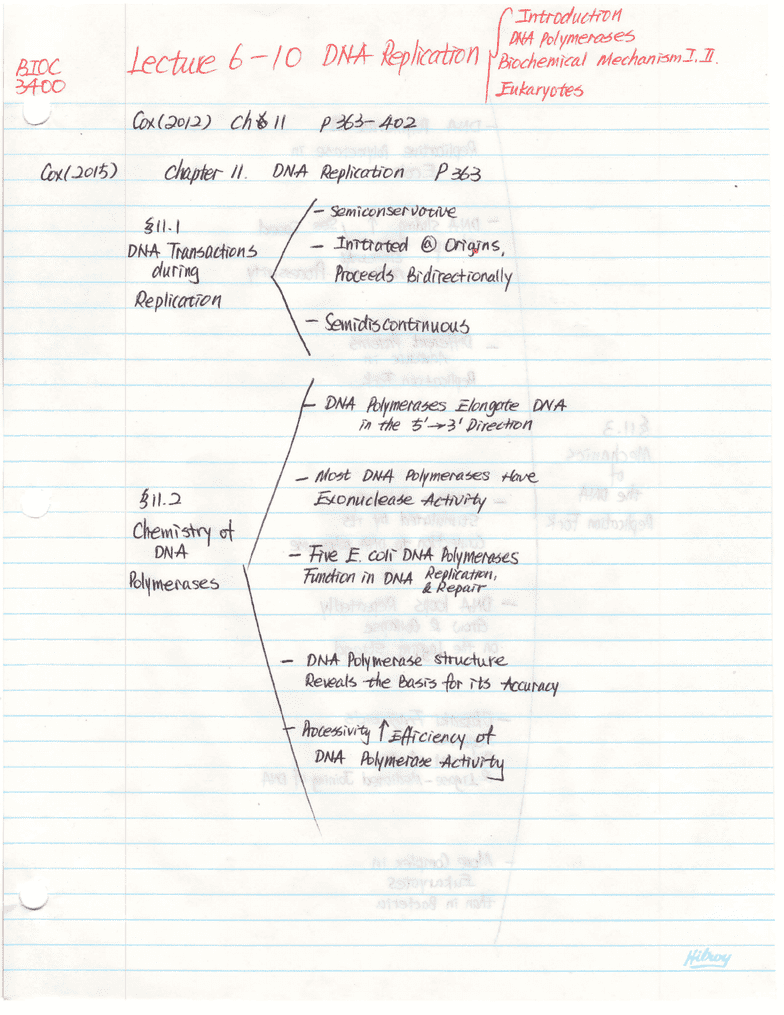 BIOC
3400
Lecture 6-10 DNA Replication
Introduction
DNA Polymerases
Biochemical Mechanism I, II.
Eukaryotes
Cox(2012) Ch 11 P363-402
Cox(2015) Chapter 11. DNA Replication P363
§11.1
DNA Transactions
during
Replication
- Semiconservative
- Initiated @ Origins,
Proceeds Bidirectionally
- Semidiscontinuous
§11.2
Chemistry of
DNA
Polymerases
- DNA Polymerases Elongate DNA
in the 5'→3' Direction
- Most DNA Polymerases Have
Exonuclease Activity
- Five E. coli DNA Polymerases
Function in DNA Replication,
& Repair
- DNA Polymerase structure
Reveals the Basis for its Accuracy
- Processivity ↑ Efficiency of
DNA Polymerase Activity
Hilroy